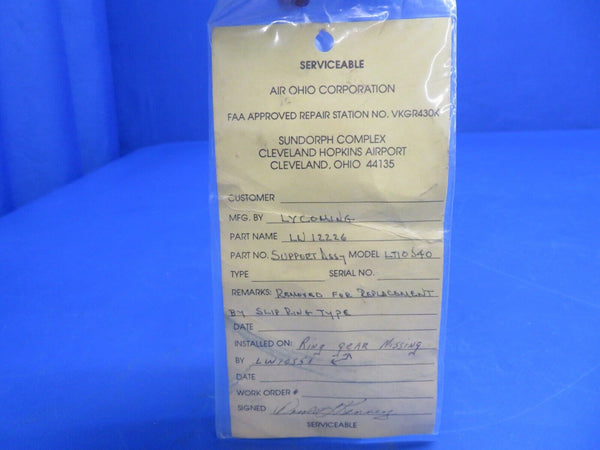 SERVICEABLE
AIR OHIO CORPORATION
FAA APPROVED REPAIR STATION NO. VKGR430K
SUNDORPH COMPLEX
CLEVELAND HOPKINS AIRPORT
CLEVELAND, OHIO 44135
CUSTOMER
MFG. BY LYCOMING
PART NAME LW 12226
PART NO. SUPPORT ASSY MODEL LTIO 540
TYPE SERIAL NO.
REMARKS: REMOVED FOR REPLACEMENT
BY SLIP RING TYPE
DATE
INSTALLED ON: RING GEAR MISSING
BY
DATE
WORK ORDER #
SIGNED
SERVICEABLE